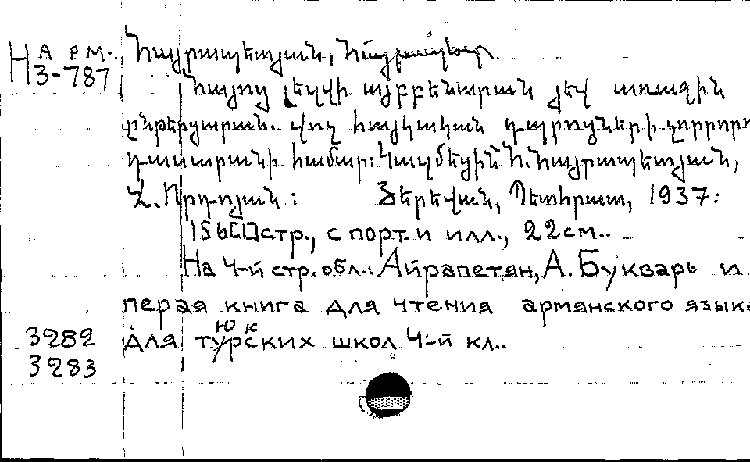 Арм.
Н 3-787
Հայրապետյան, Հայրապետ
Հայոց լեզվի այբբենարան յեվ առաջին
ընթերցարան. վոչ հայկական դպրոցների չորրորդ
դասարանի համար: Կազմեցին Հ. Հայրապետյան,
Յերեվան, Պետհրատ, 1937:
156[]стр., с порт. и илл., 22см..
На 4-й стр. обл.: Айрапетян, А. Букварь и
перая книга для чтения армянского языка
для тюркских школ 4-й кл..
3282
3283